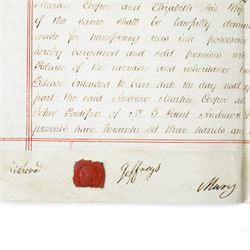 Martha Cooper and Elizabeth his Wife
of the same shall be lawfully
made for transferring uses into possession
hereby bargained and sold premises
Release of the reversion and inheritance
Release intended to bear date the day
part the said Andrew Martin Cooper
John of Nº Saint Andrew
presents have hereunto set their hands and
Jeffreys
Mary